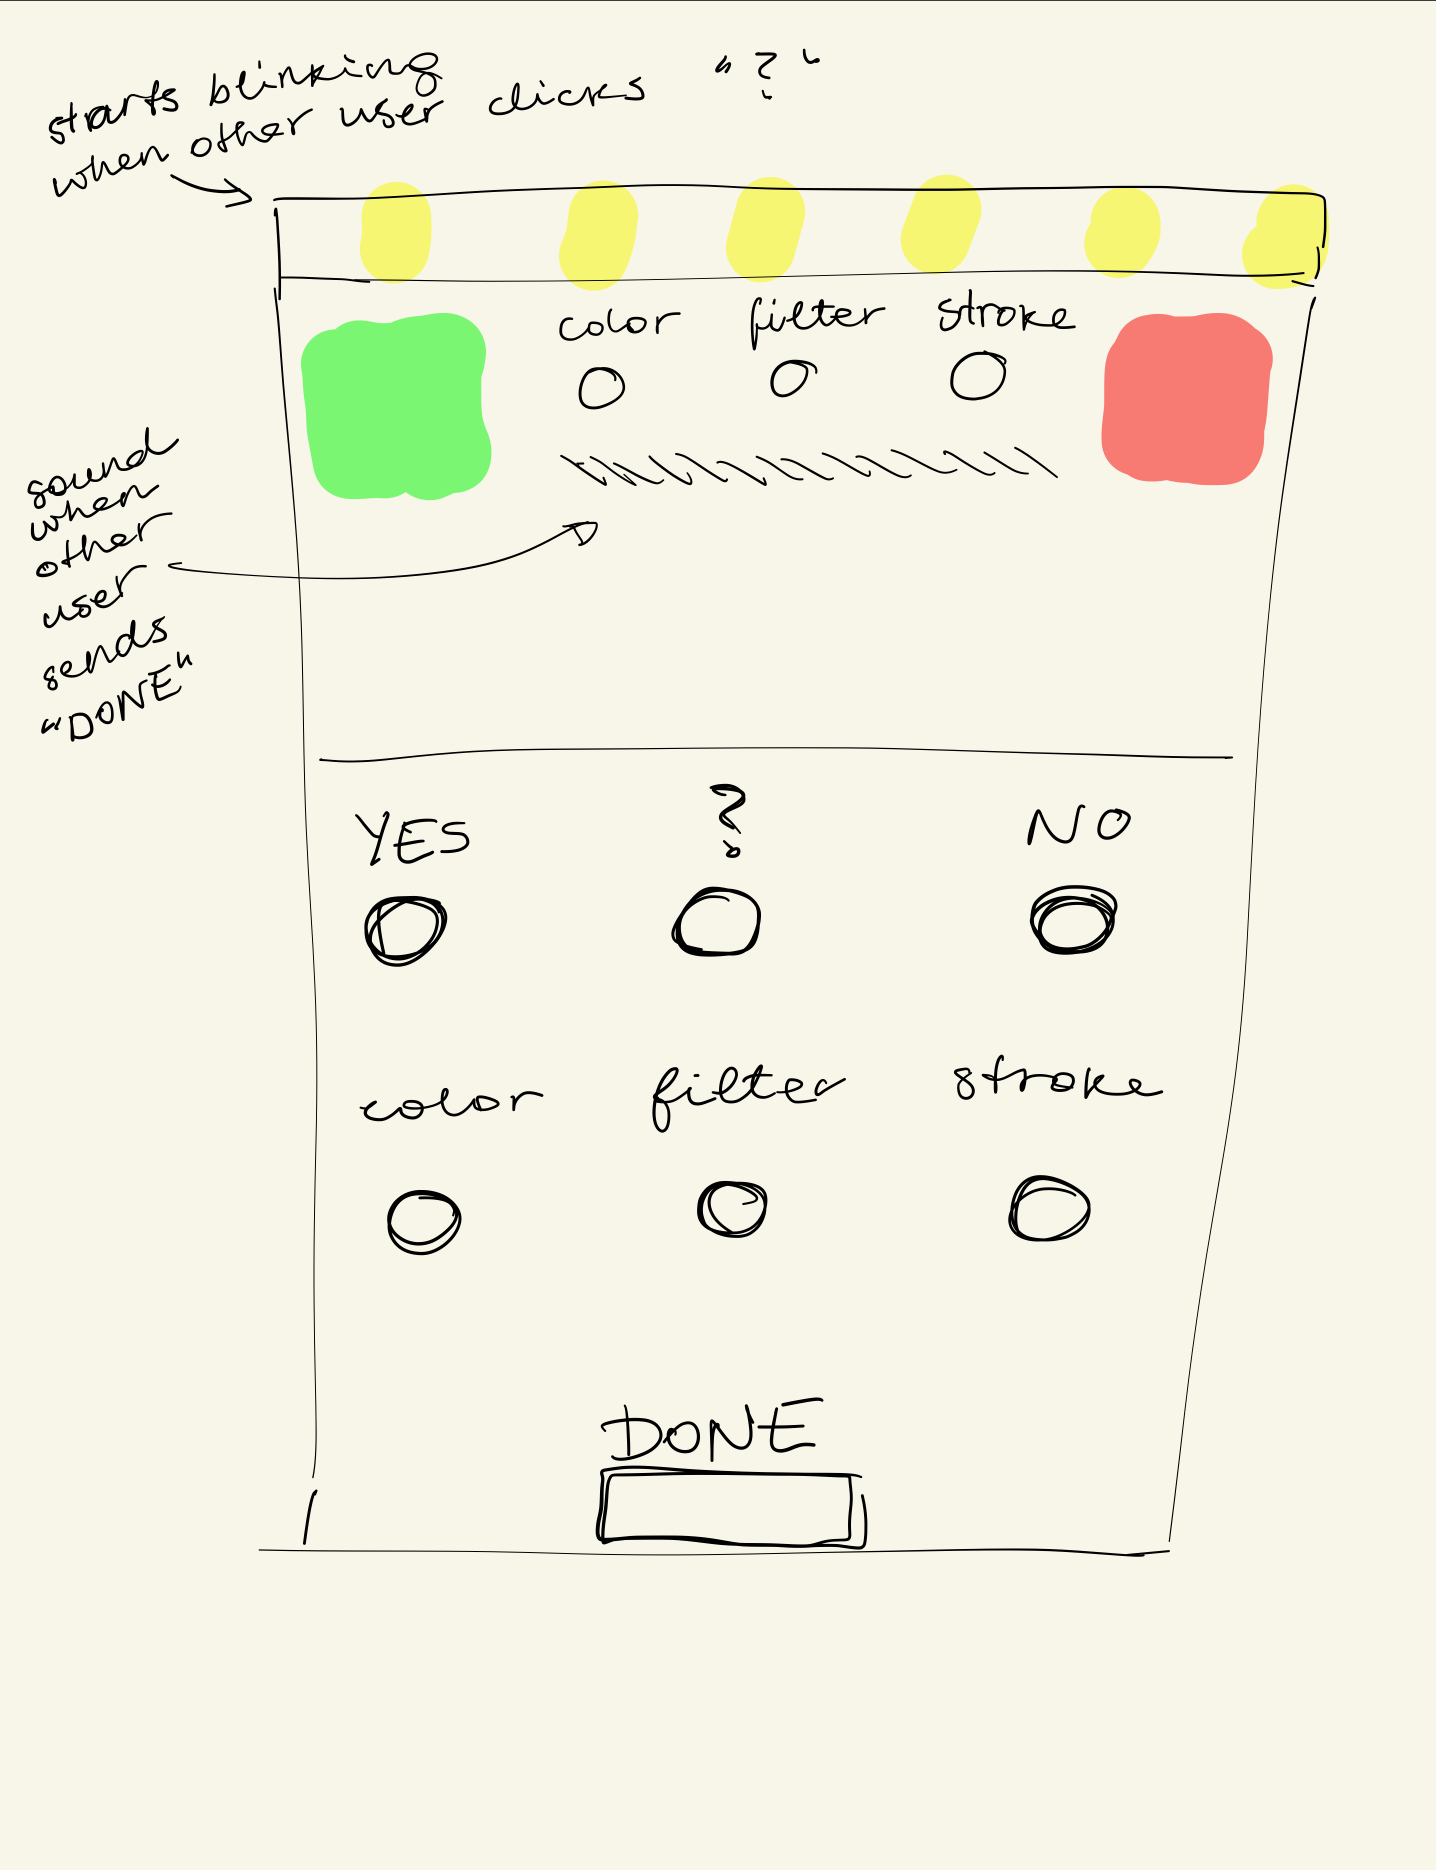 starts blinking
when other user clicks "?"
color filter stroke
sound
when
other
user
sends
"DONE"
YES ? NO
color filter stroke
DONE